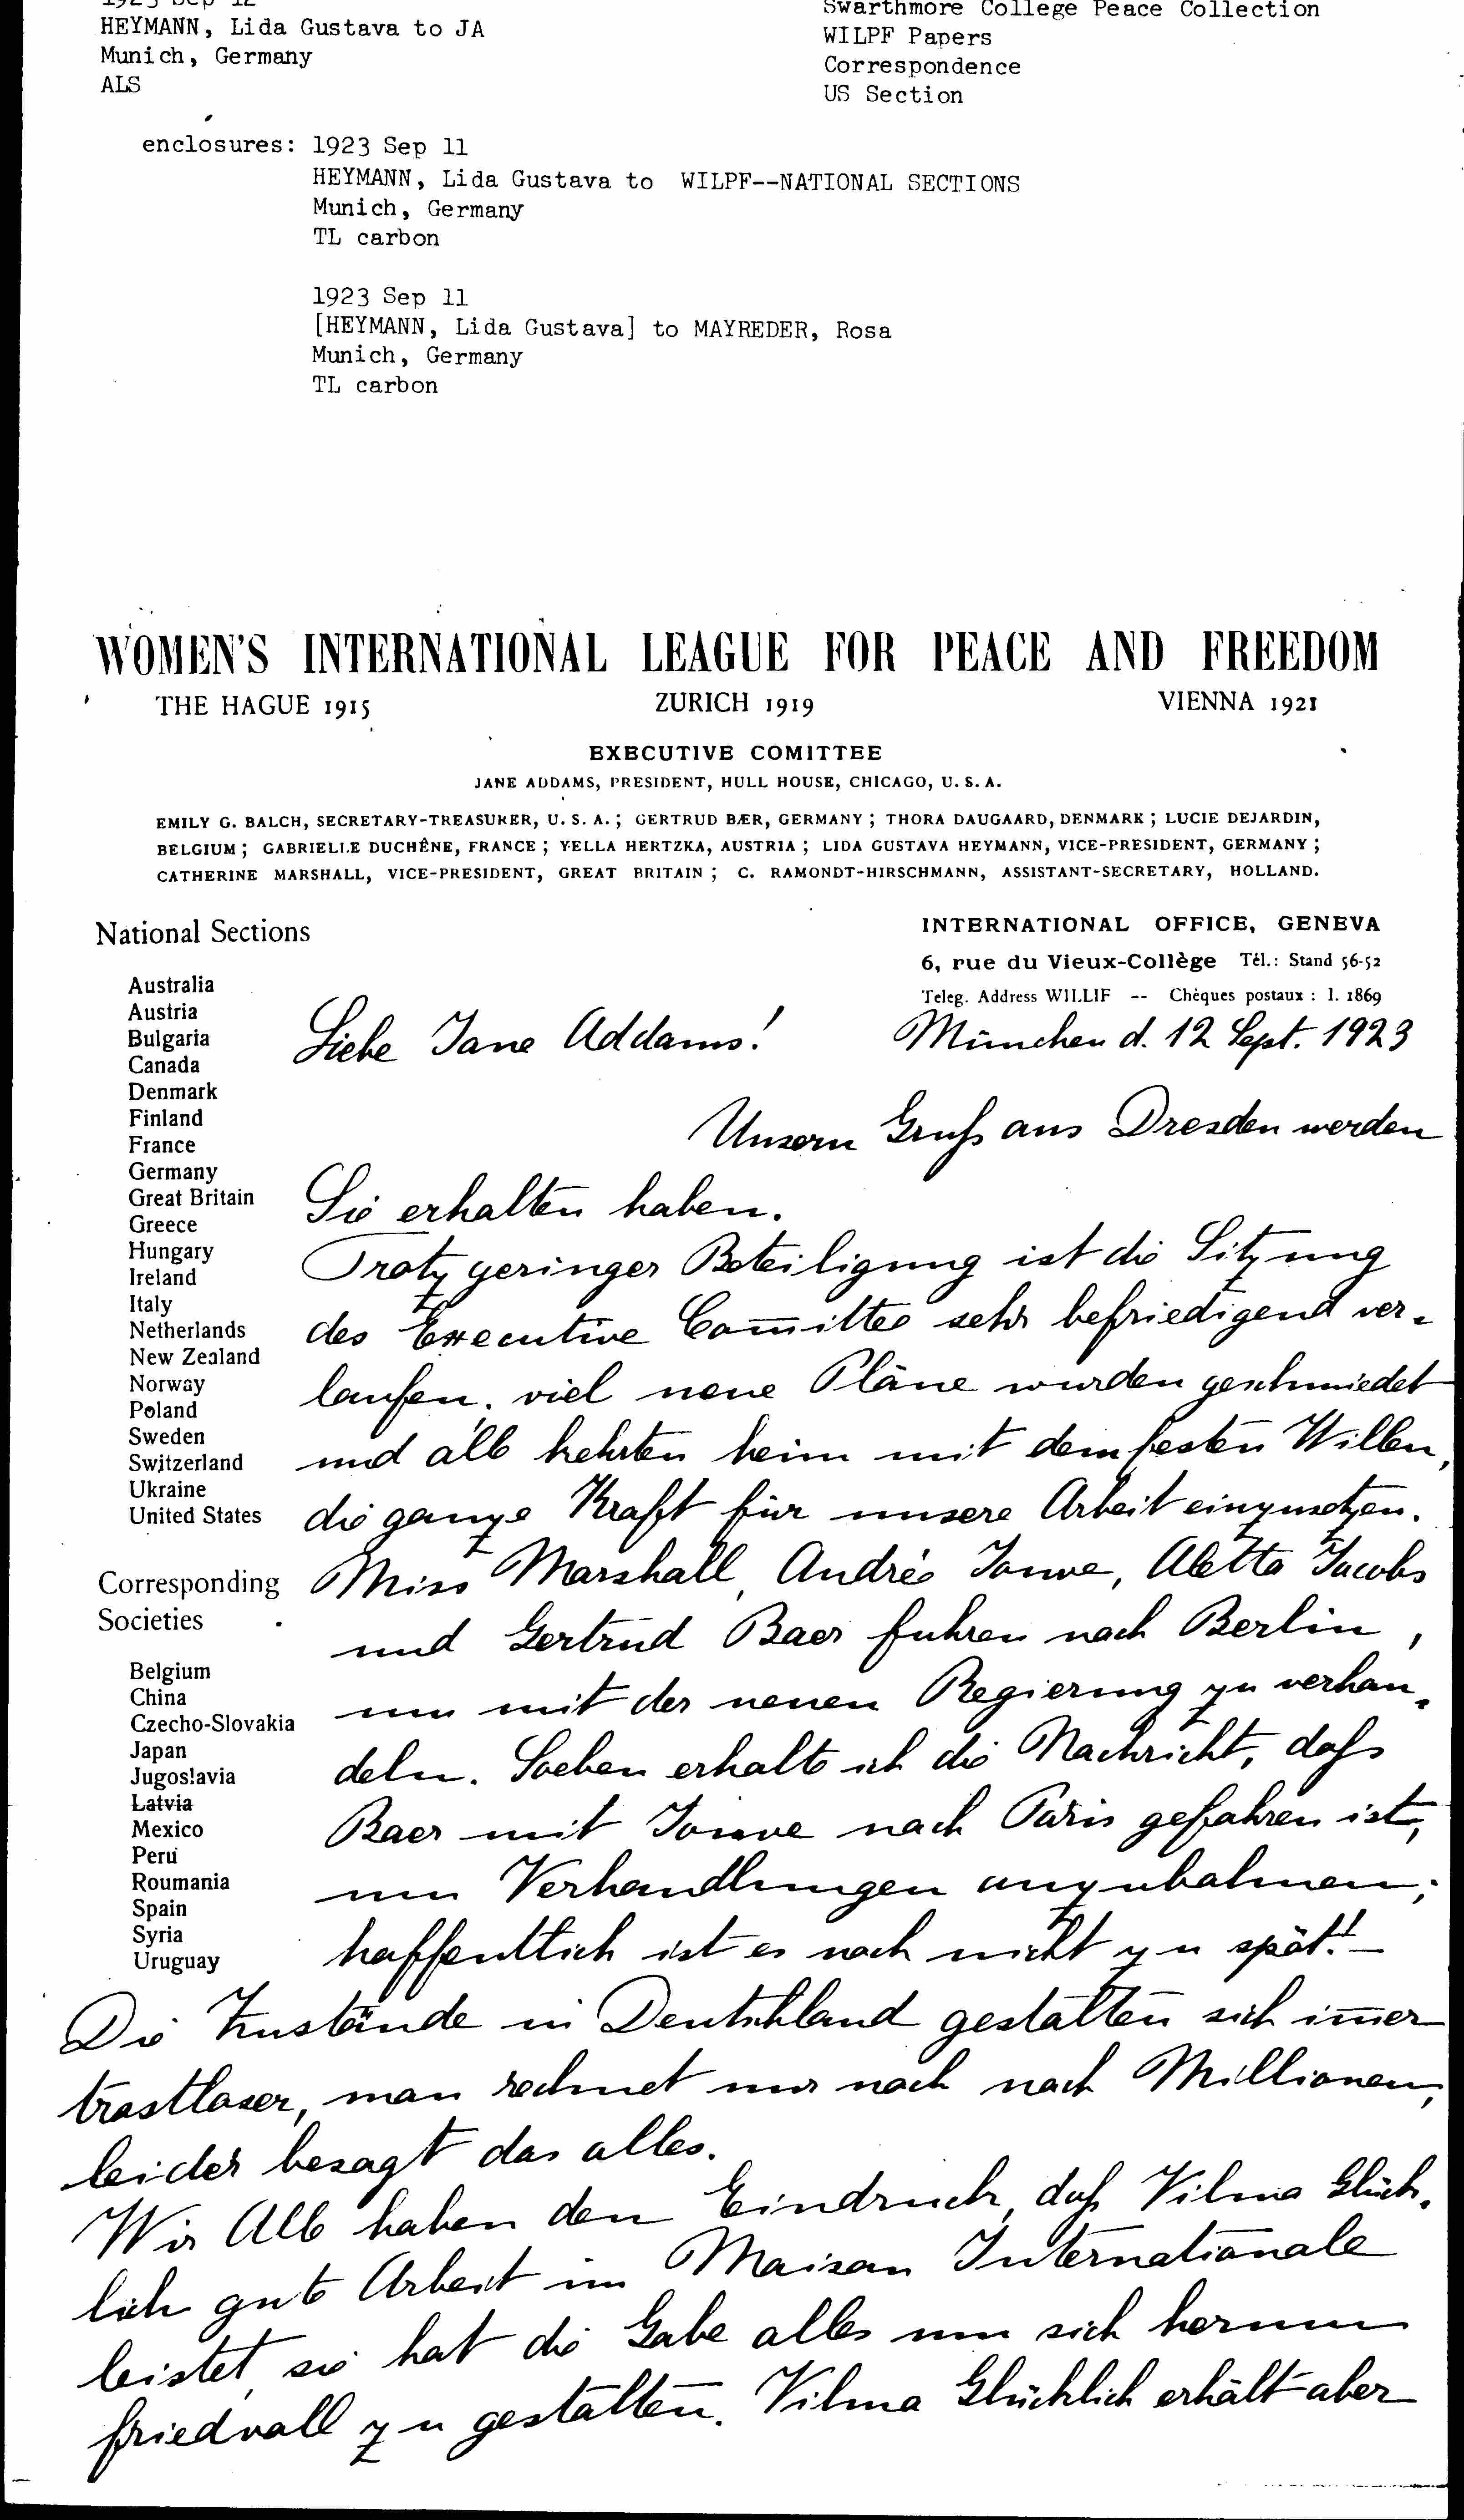 1923 Sep 12
HEYMANN, Lida Gustava to JA
Munich, Germany
ALS
Swarthmore College Peace Collection
WILPF Papers
Correspondence
US Section
enclosures: 1923 Sep 11
HEYMANN, Lida Gustava to WILPF--NATIONAL SECTIONS
Munich, Germany
TL carbon
1923 Sep 11
[HEYMANN, Lida Gustava] to MAYREDER, Rosa
Munich, Germany
TL carbon
WOMEN'S INTERNATIONAL LEAGUE FOR PEACE AND FREEDOM
THE HAGUE 1915 ZURICH 1919 VIENNA 1921
EXECUTIVE COMITTEE
JANE ADDAMS, PRESIDENT, HULL HOUSE, CHICAGO, U. S. A.
EMILY G. BALCH, SECRETARY-TREASURER, U. S. A. ; GERTRUD BÆR, GERMANY ; THORA DAUGAARD, DENMARK ; LUCIE DEJARDIN,
BELGIUM ; GABRIELLE DUCHÊNE, FRANCE ; YELLA HERTZKA, AUSTRIA ; LIDA GUSTAVA HEYMANN, VICE-PRESIDENT, GERMANY ;
CATHERINE MARSHALL, VICE-PRESIDENT, GREAT BRITAIN ; C. RAMONDT-HIRSCHMANN, ASSISTANT-SECRETARY, HOLLAND.
National Sections
Australia
Austria
Bulgaria
Canada
Denmark
Finland
France
Germany
Great Britain
Greece
Hungary
Ireland
Italy
Netherlands
New Zealand
Norway
Poland
Sweden
Switzerland
Ukraine
United States
Corresponding
Societies
Belgium
China
Czecho-Slovakia
Japan
Jugoslavia
Latvia
Mexico
Peru
Roumania
Spain
Syria
Uruguay
INTERNATIONAL OFFICE, GENEVA
6, rue du Vieux-Collège Tél.: Stand 56-52
Teleg. Address WILLIF -- Chèques postaux : I. 1869
Liebe Jane Addams! München d. 12 Sept. 1923
Unsern Gruß aus Dresden werden
Sie erhalten haben.
Trotz geringer Beteiligung ist die Sitzung
des Executive Committee sehr befriedigend ver-
laufen, viel neue Pläne wurden geschmiedet
und alle kehrten heim mit dem festen Willen,
die ganze Kraft für unsere Arbeit einzusetzen.
Miss Marshall, Andrée Jouve, Aletta Jacobs
und Gertrud Baer fuhren nach Berlin,
um mit der neuen Regierung zu verhan-
deln. Soeben erhalte ich die Nachricht, daß
Baer mit Jouve nach Paris gefahren ist,
um Verhandlungen anzubahnen;
hoffentlich ist es noch nicht zu spät! –
Die Zustände in Deutschland gestalten sich immer
trostloser, man rechnet nur noch nach Millionen,
leider besagt das alles.
Wir Alle haben den Eindruck, daß Vilma Glück-
lich gute Arbeit im Maison Internationale
leistet, sie hat die Gabe alles um sich herum
friedvoll zu gestalten. Vilma Glücklich erhält aber